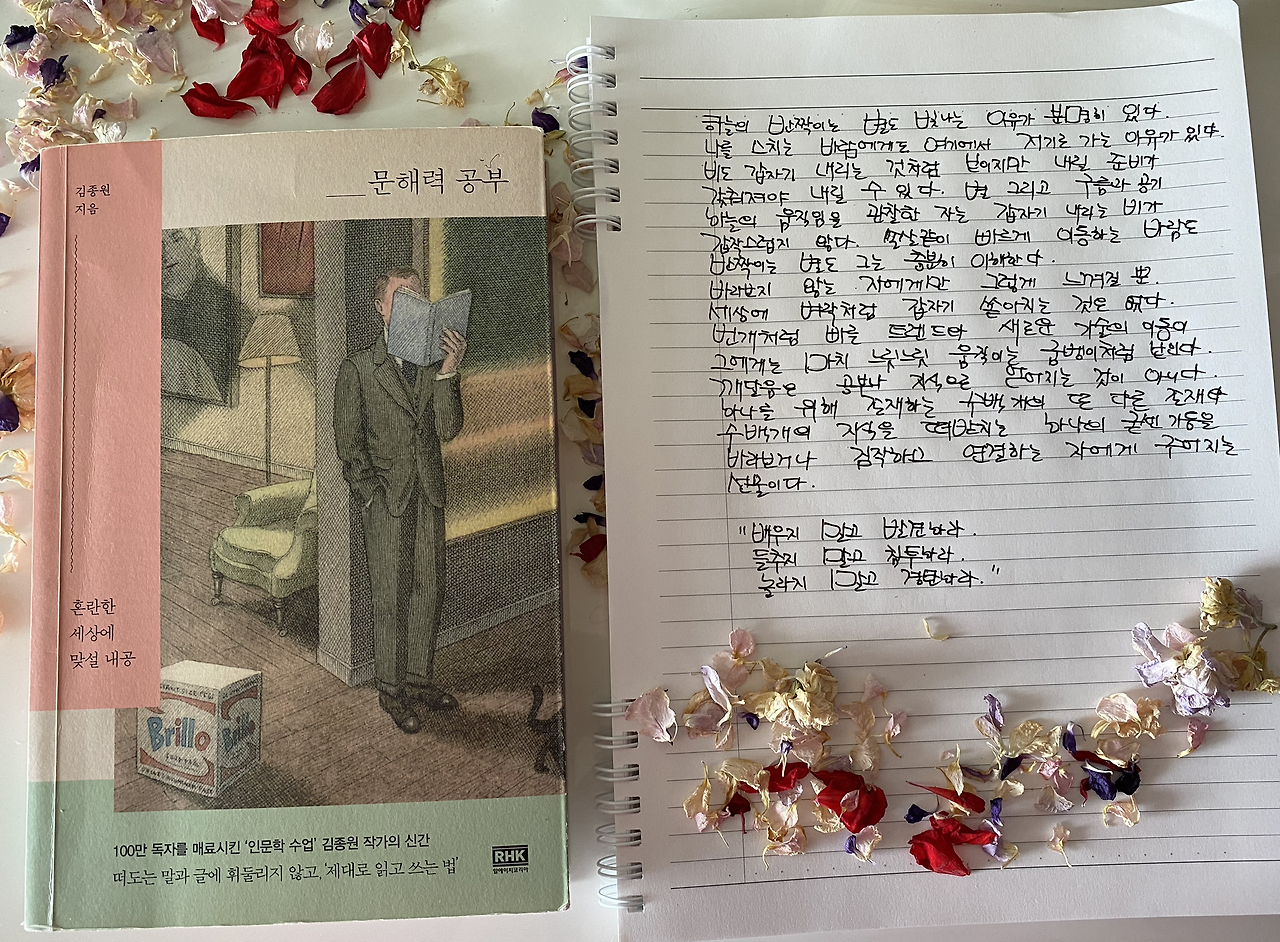 김종원
지음
문해력 공부
혼란한
세상에
맞설 내공
GIANT SIZE PKG.
Brillo
Brillo
100만 독자를 매료시킨 '인문학 수업' 김종원 작가의 신간
떠도는 말과 글에 휘둘리지 않고, '제대로 읽고 쓰는 법'
RHK
알에이치코리아
하늘의 반짝이는 별도 빛나는 이유가 분명히 있다.
나를 스치는 바람에게도 여기에서 저기로 가는 이유가 있다.
비도 갑자기 내리는 것처럼 보이지만 내릴 준비가
갖춰져야 내릴 수 있다. 별 그리고 구름과 공기
하늘의 움직임을 관찰한 자는 갑자기 내리는 비가
갑작스럽지 않다. 쏜살같이 빠르게 이동하는 바람도
반짝이는 별도 그는 충분히 이해한다.
바라보지 않는 자에게만 그렇게 느껴질 뿐
세상에 벼락처럼 갑자기 쏟아지는 것은 없다.
번개처럼 빠른 트렌드와 새로운 기술의 이동이
그에게는 마치 느릿느릿 움직이는 굼벵이처럼 보인다.
깨달음은 공부나 지식으로 얻어지는 것이 아니다.
하나를 위해 존재하는 수백 개의 또 다른 존재와
수백개의 지식을 떠받치는 하나의 굳센 기둥을
바라보거나 짐작하고 연결하는 자에게 주어지는
선물이다.
"배우지 말고 발견하라.
들추지 말고 침투하라.
놀라지 말고 경탄하라."